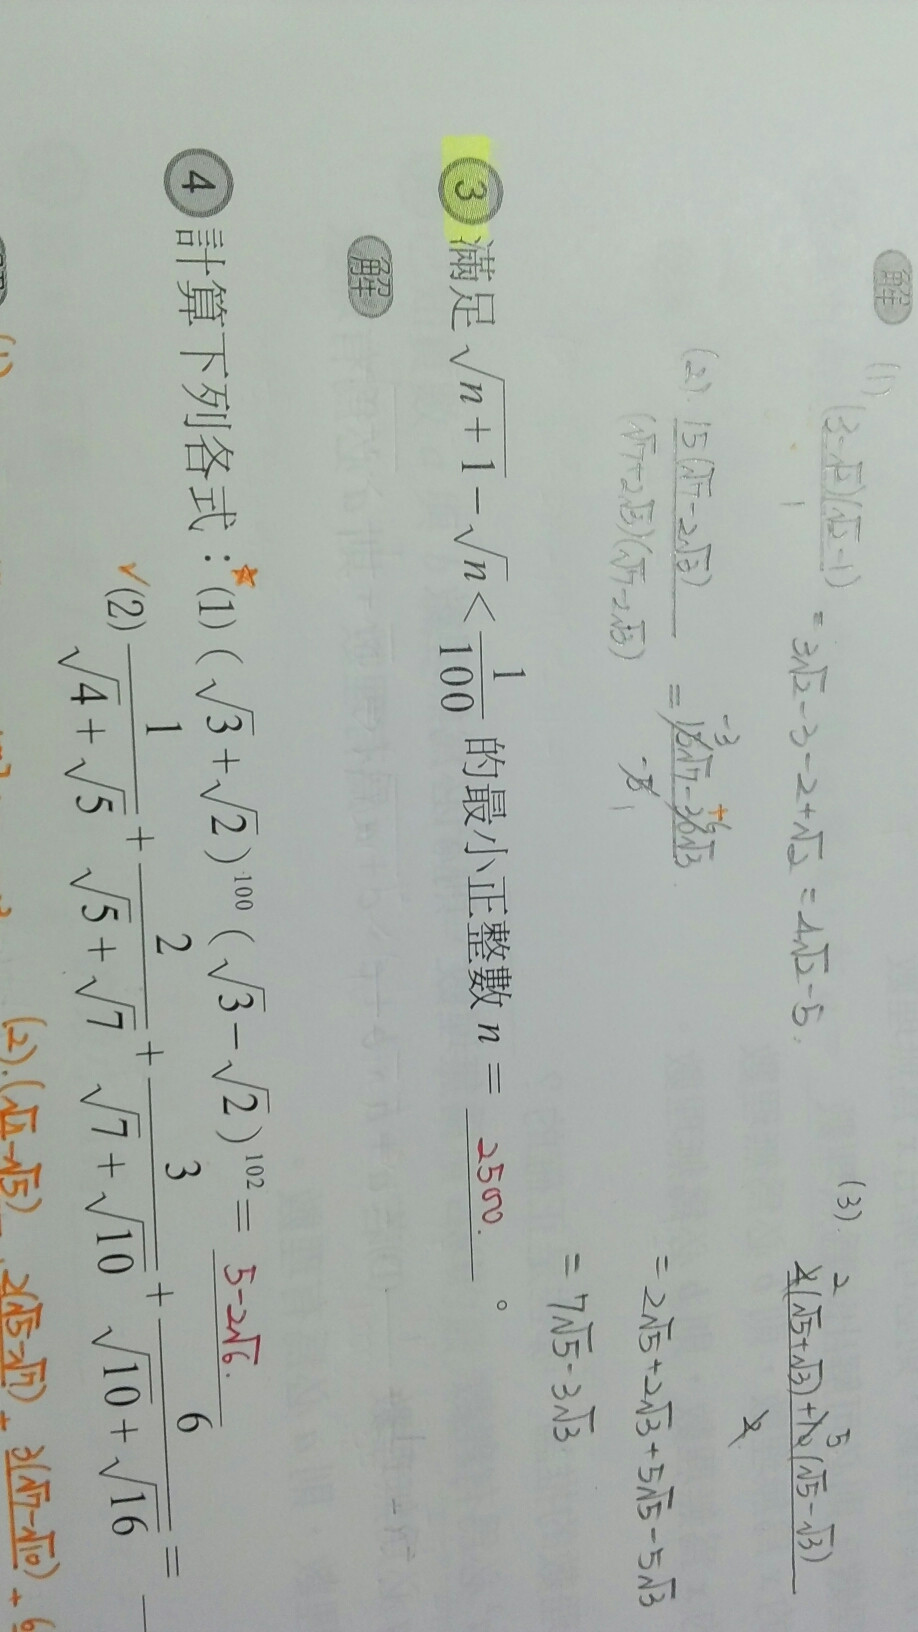 解
(1) (3-√2)(√2-1) / 1 = 3√2-3-2+√2 = 4√2-5.
(2). 15(√7-2√3) / (√7+2√3)(√7-2√3) = 15√7-30√3 / -5 -3 +6 1
(3). 4(√5+√3)+10(√5-√3) / 2 2 5
= 2√5+2√3+5√5-5√3
= 7√5-3√3
3 滿足 √n+1 - √n < 1/100 的最小正整數 n = 2500. 。
解
4 計算下列各式：(1) (√3+√2)¹⁰⁰(√3-√2)¹⁰² = 5-2√6.
✓(2) 1/(√4+√5) + 2/(√5+√7) + 3/(√7+√10) + 6/(√10+√16) =
(2).(√4-√5) 2(√5-√7) + 3(√7-√10) + 6